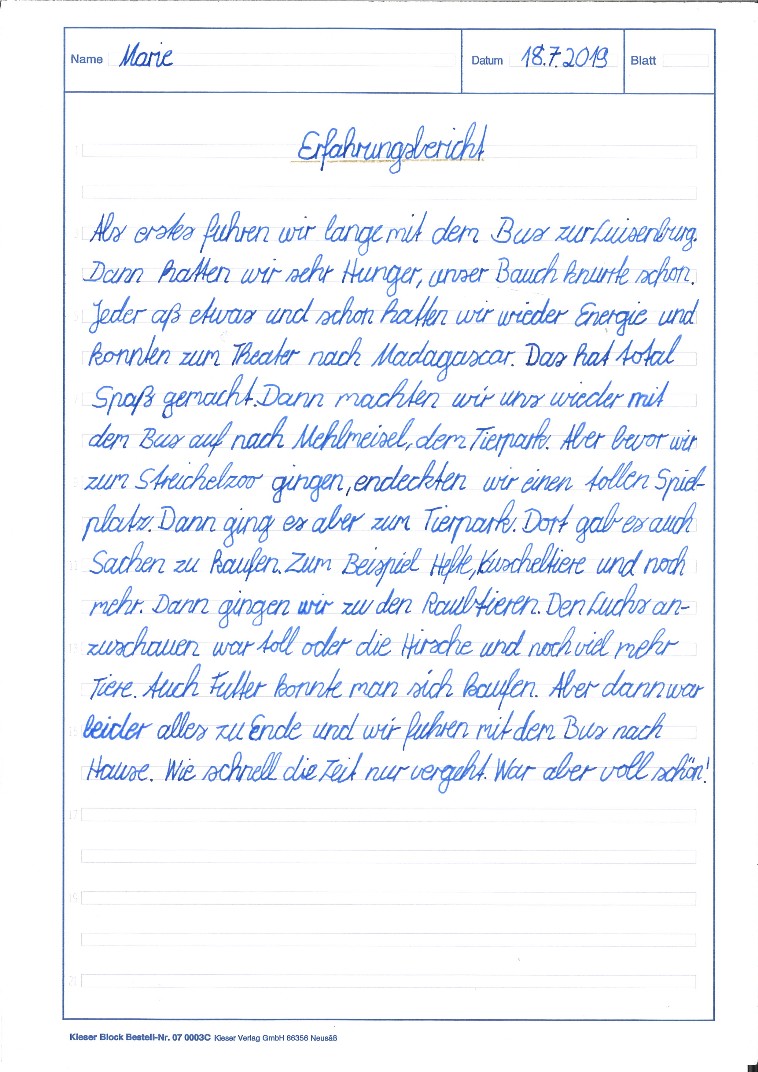 Name Marie Datum 18.7.2019 Blatt
Erfahrungsbericht
Als erstes fuhren wir lange mit dem Bus zur Luisenburg.
Dann hatten wir sehr Hunger, unser Bauch knurrte schon.
Jeder aß etwas und schon hatten wir wieder Energie und
konnten zum Theater nach Madagascar. Das hat total
Spaß gemacht. Dann machten wir uns wieder mit
dem Bus auf nach Mehlmeisel, dem Tierpark. Aber bevor wir
zum Streichelzoo gingen, endeckten wir einen tollen Spiel-
platz. Dann ging es aber zum Tierpark. Dort gab es auch
Sachen zu kaufen. Zum Beispiel Hefte, Kuscheltiere und noch
mehr. Dann gingen wir zu den Raubtieren. Den Luchs an-
zuschauen war toll oder die Hirsche und noch viel mehr
Tiere. Auch Futter konnte man sich kaufen. Aber dann war
leider alles zu Ende und wir fuhren mit dem Bus nach
Hause. Wie schnell die Zeit nur vergeht. War aber voll schön!
17
19
21
Kieser Block Bestell-Nr. 07 0003C Kieser Verlag GmbH 86356 Neusäß